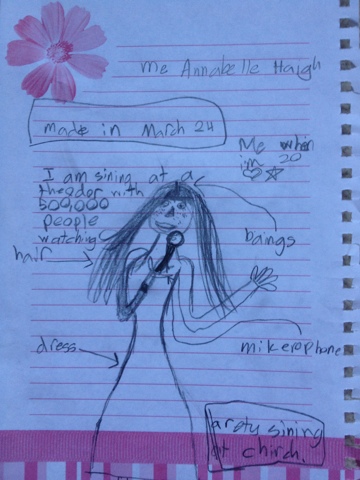 me Annabelle Haigh
made in March 24
Me when
im 20
I am sining at a
theodor with
500,000
people
watching
hair
baings
dress
mikerophone
arsty sining
at chirch.